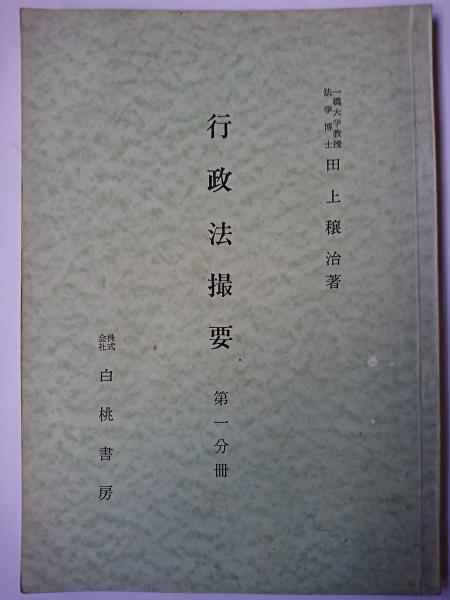 一橋大学教授
法学博士
田上穣治著
行政法撮要 第一分冊
株式会社
白桃書房